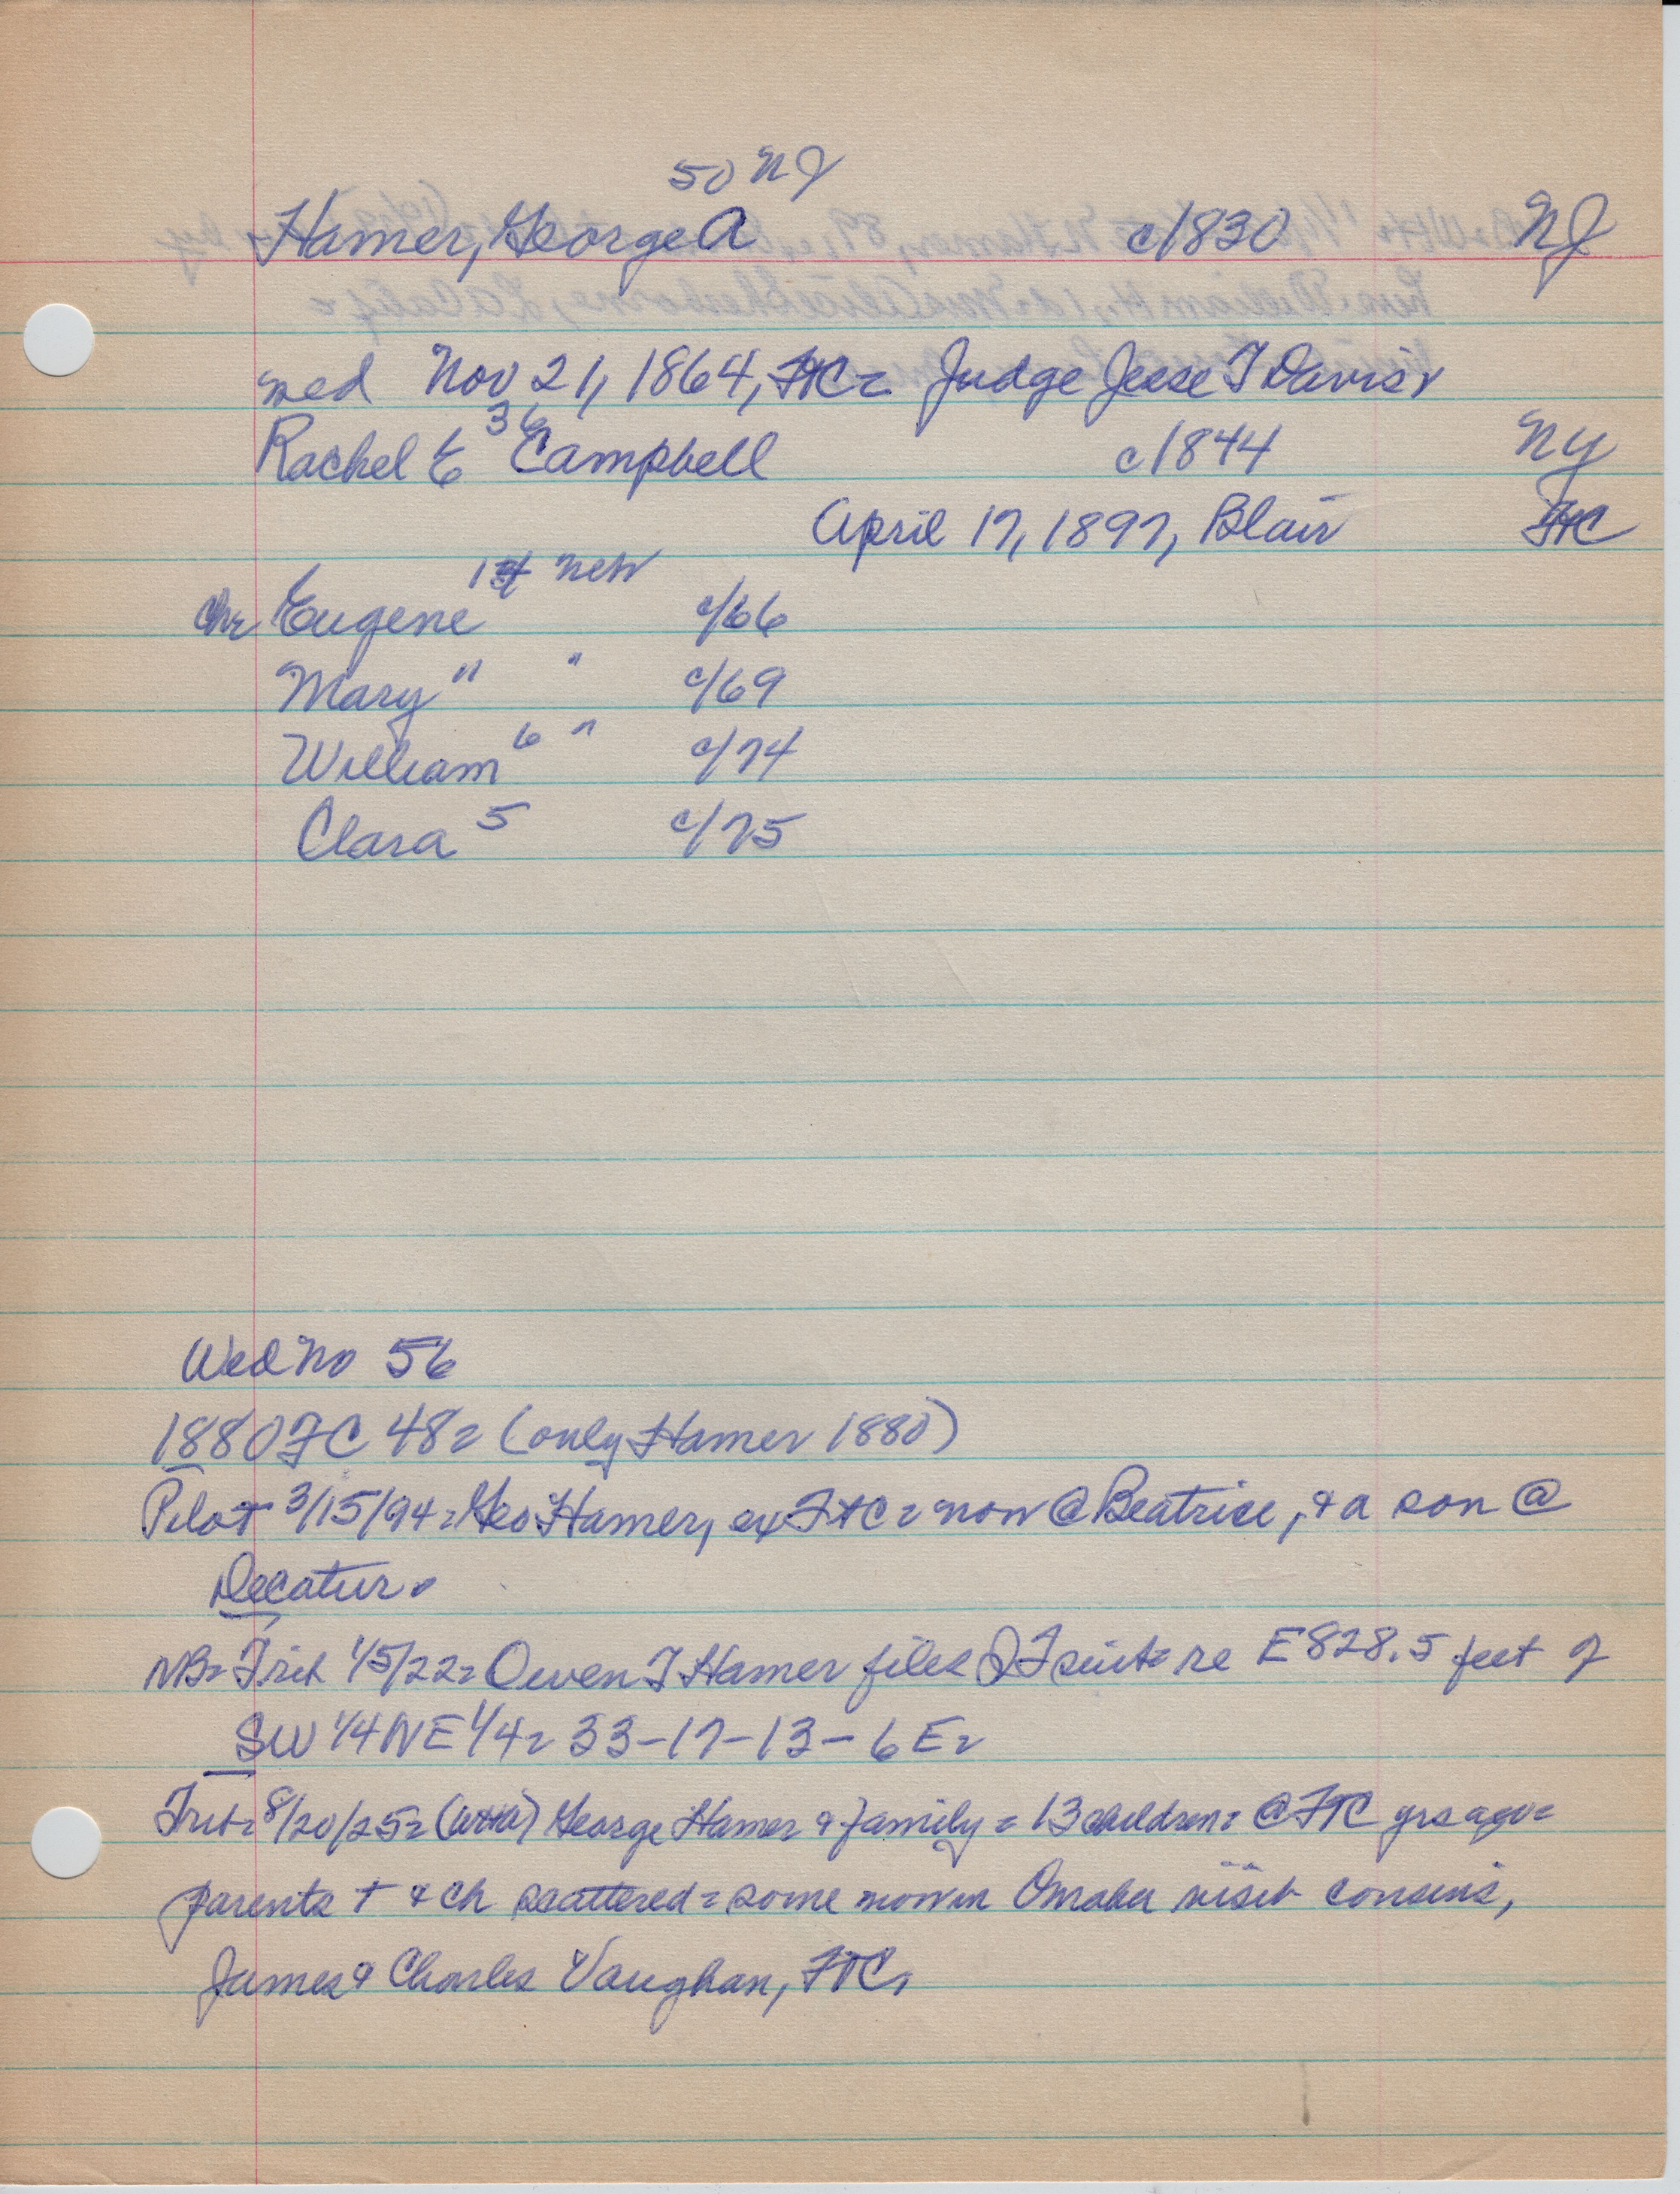 50 NJ
Hamer, George A c/1830 NJ
wed Nov 21, 1864, FtC = Judge Jesse T Davis,
36
Rachel E Campbell c/1844 NY
April 17, 1897, Blair FtC
1st Neb
Ch= Eugene c/66
Mary " " c/69
William 6 " c/74
Clara 5 c/75
Wed No 56
1880 FC 48= (only Hamer 1880)
Pilot 3/15/94= Geo Hamer, ex FtC= now @ Beatrice, & a son @
Decatur.
NB= Trib 1/5/22= Owen T Hamer files QT suit= re E 828.5 feet of
SW 1/4 NE 1/4= 33-17-13-6E=
Trib= 8/20/25= George Hamer & family = 13 children= @ FTC yrs ago=
parents + & ch scattered= some now in Omaha visit cousins,
James & Charles Vaughan, FTC,